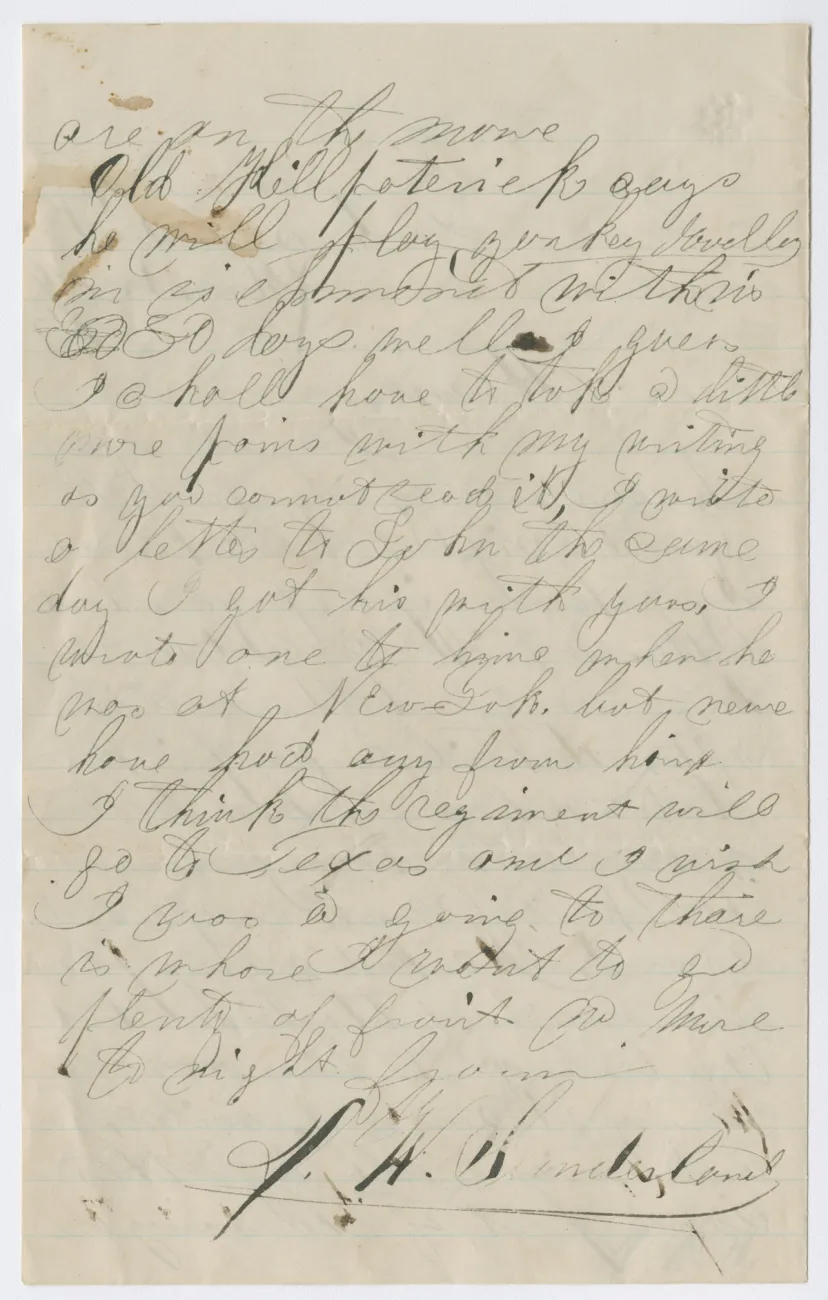 are on the move
Old Killpaterick says
he will play yankey doodley
in is command with is
30 days. well I guess
I shall have to take a little
more pains with my writing
as you cannot read it, I wrote
a letter to John the same
day I got his with yours, I
wrote one to hime when he
was at New-York. but neve
have had any from him
I think the regiment will
go to Texas and I wish
I was a going to thare
is whare I want to go
plenty of fruit no more
to night from
J. H.